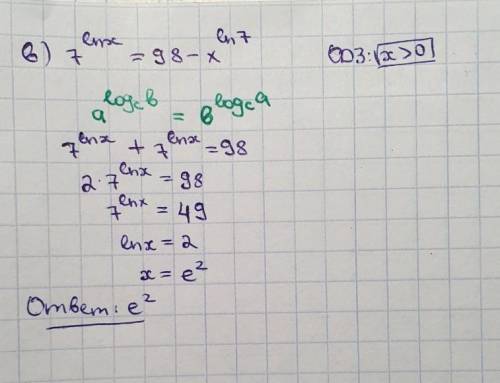 в) 7^{lnx} = 98 - x^{ln7} ОДЗ: x>0
a^{log_c b} = b^{log_c a}
7^{lnx} + 7^{lnx} = 98
2·7^{lnx} = 98
7^{lnx} = 49
lnx = 2
x = e²
Ответ: e²